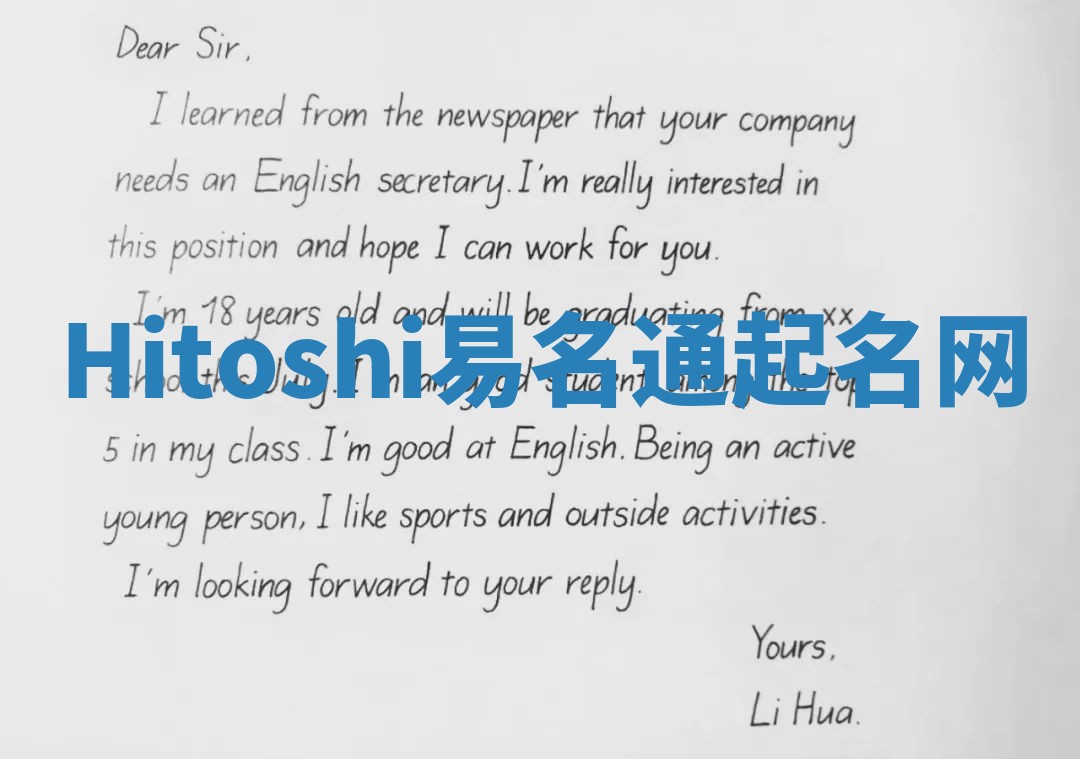 Dear Sir,
I learned from the newspaper that your company
needs an English secretary. I'm really interested in
this position and hope I can work for you.
I'm 18 years old and will be graduating from xx
Hitoshi易名通起名网
school this July. I'm a good student among the top
5 in my class. I'm good at English. Being an active
young person, I like sports and outside activities.
I'm looking forward to your reply.
Yours,
Li Hua.